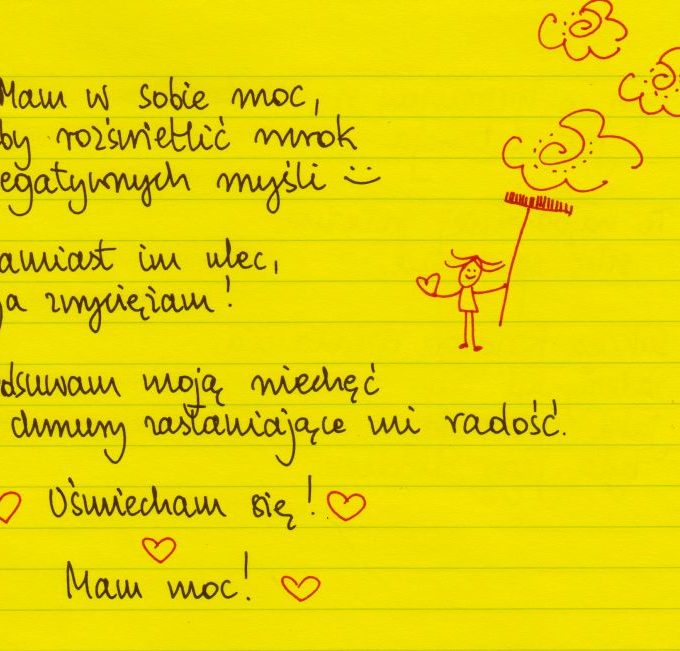 Mam w sobie moc,
by rozświetlić mrok
egatywnych myśli :)
amiast im ulec,
ja zwyciężam!
dsuwam moją niechęć
chmury zasłaniające mi radość.
Uśmiecham się!
Mam moc!